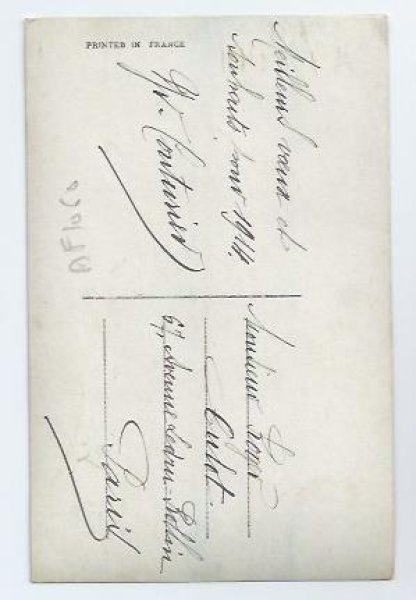 PRINTED IN FRANCE
Meilleurs vœux et
souhaits pour 1914.
Couturier
Monsieur
Culot
67, Avenue Ledru-Rollin
Paris